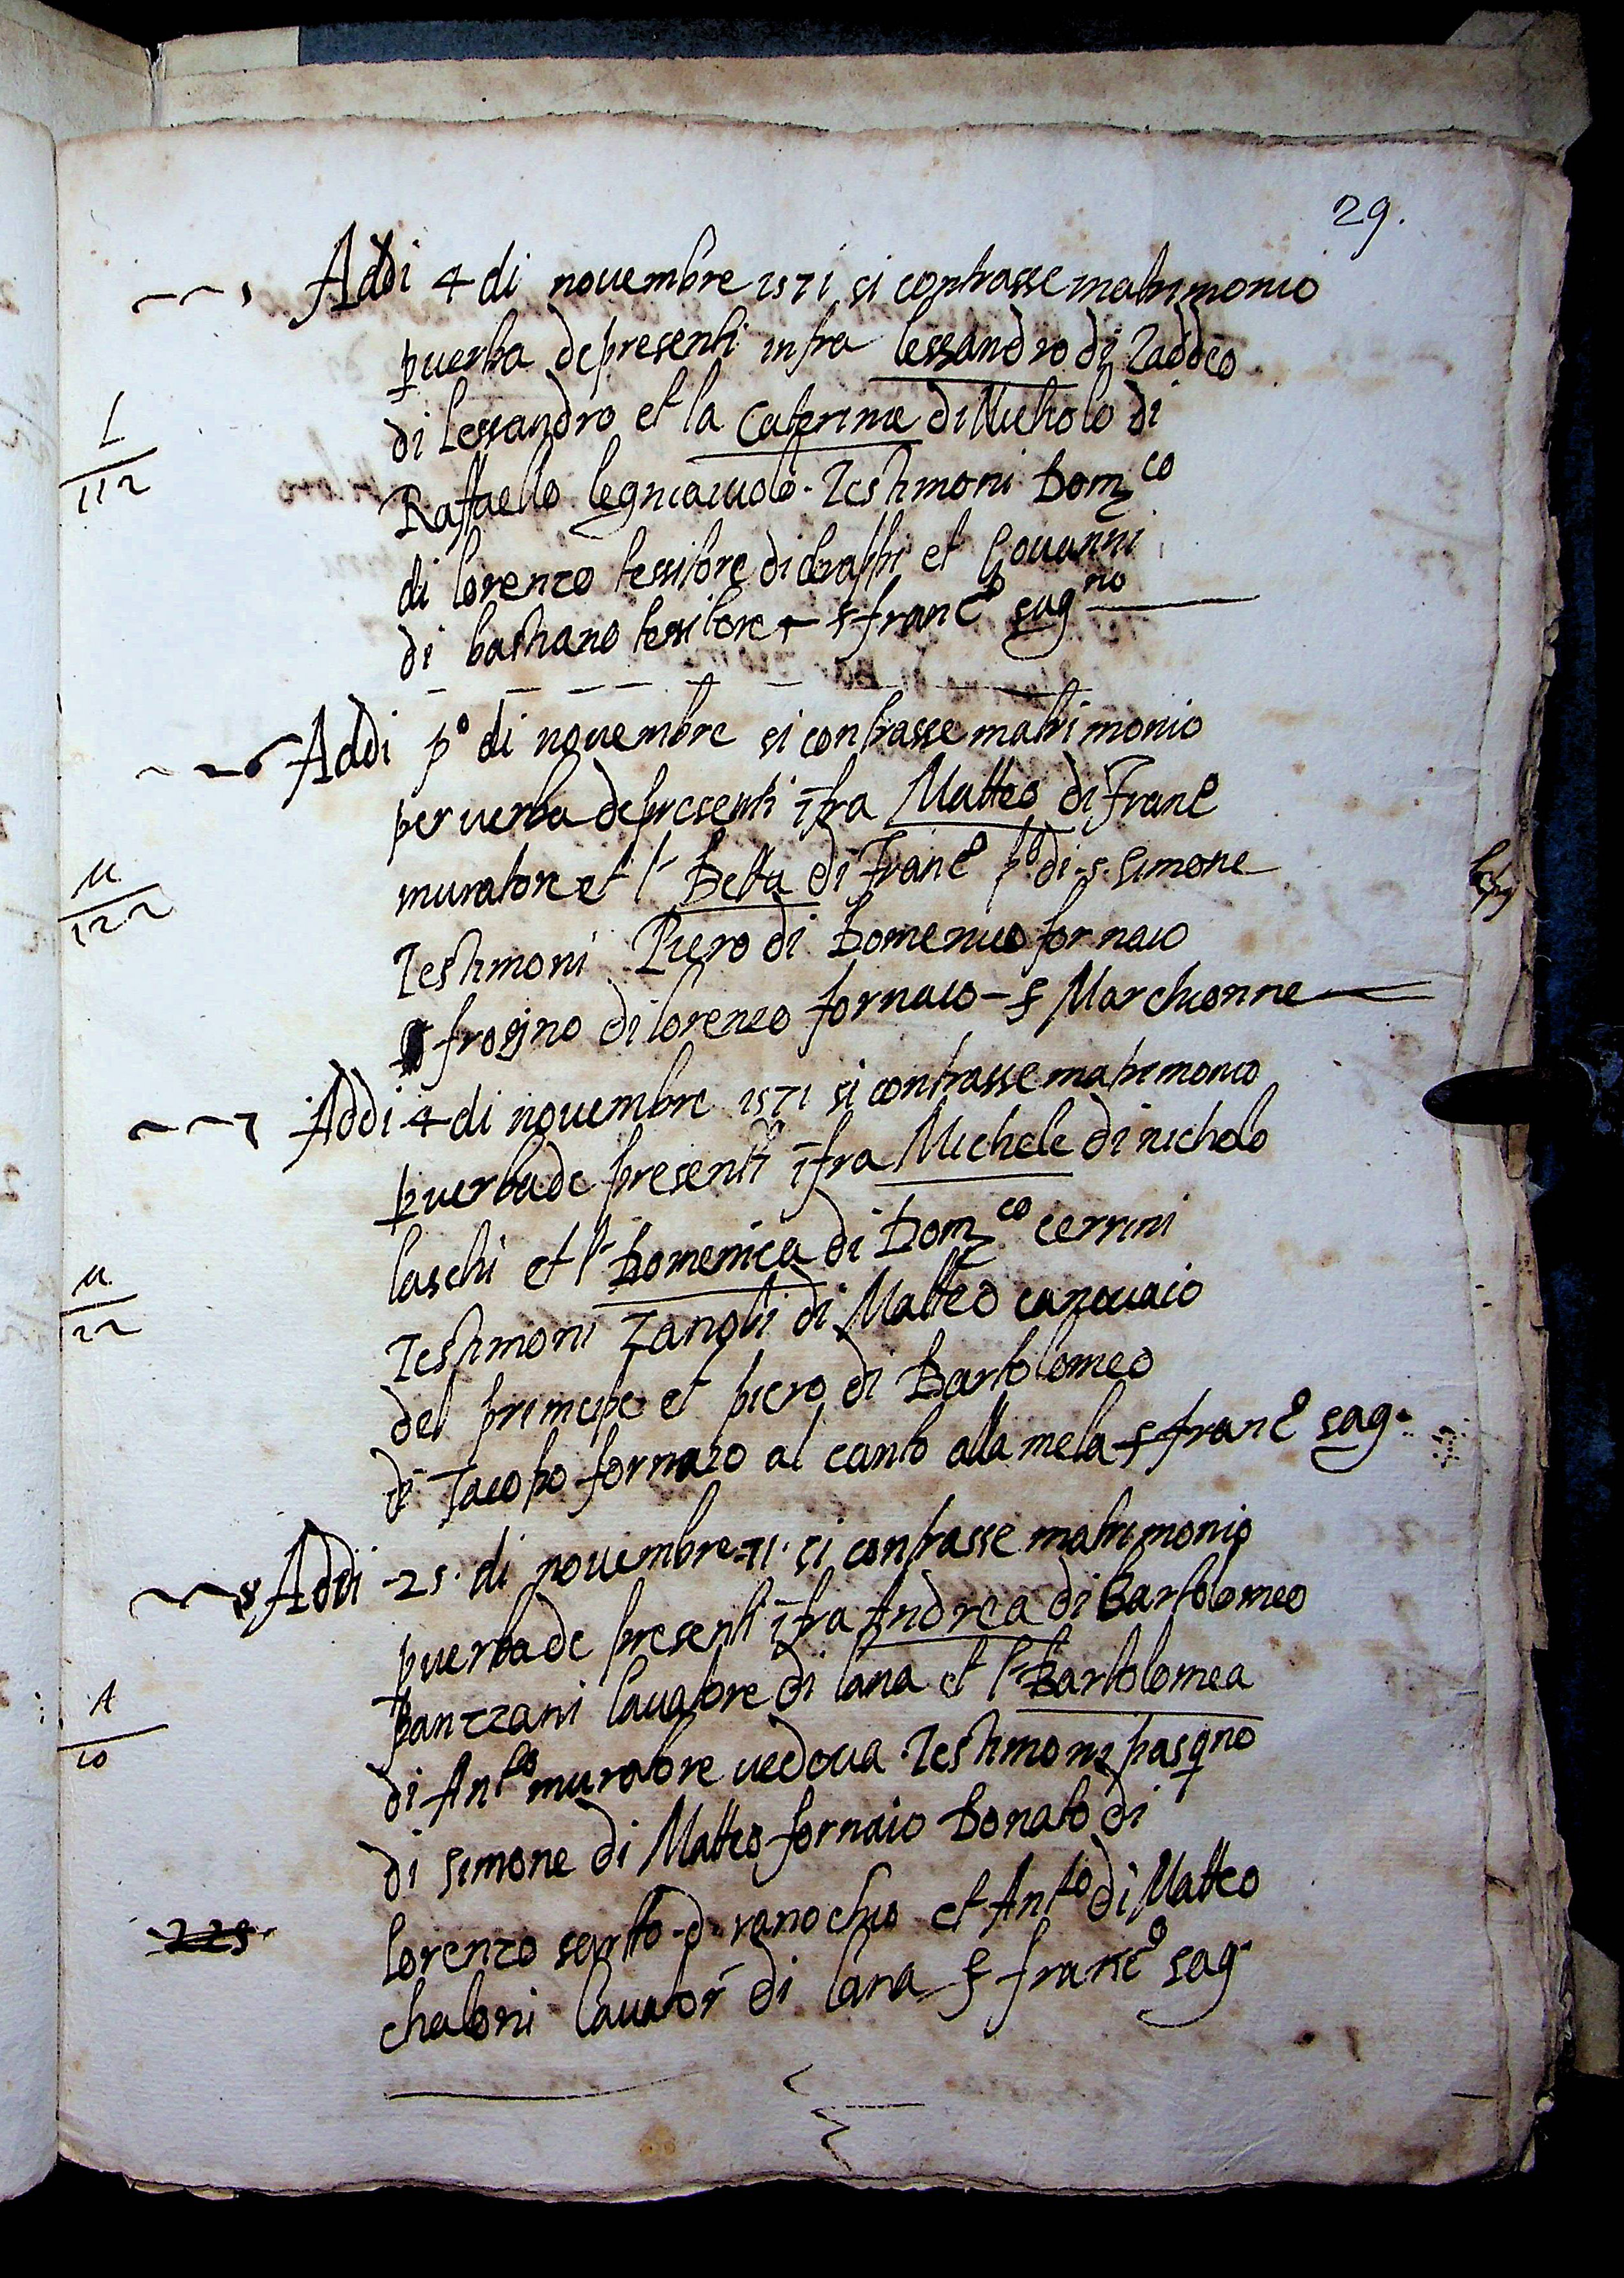 29.
Addi 4 di nouembre 1571 si contrasse matrimonio
p uerba de presenti infra lessandro di Taddeo
di lessandro et la Caterina di Nicholo di
L
112
Raffaello legniaiuolo. Testimoni Domco
di lorenzo tessitore di drappi et Giouanni
di bastiano tessitore franco sagno
Addi po di nouembre si contrasse matrimonio
per uerba de presenti ifra Matteo di Franco
muratore et la Betta di Franco po di s. Simone
M
122
Testimoni Piero di Domenico fornaio
frosino di lorenzo fornaio Marchionne
7 Addi 4 di nouembre 1571 si contrasse matrimonio
p uerba de presenti ifra Michele di nicholo
laschi et la Domenica di Domco cerrini
M
22
Testimoni Zanobi di Matteo canouaio
del principe et piero di Bartolomeo
di Jacopo fornaio al canto alla mela franco sag.
8 Addi 25. di nouembre 71. si contrasse matrimonio
p uerba de presenti ifra Andrea di Bartolomeo
panzzani lauatore di lana et la Bartolomea
A
10
di Anto muratore uedoua. Testimoni pasqno
di simone di Matteo fornaio Donato di
lorenzo sarto et Anto di Matteo
225
lauator di lana franco sag.